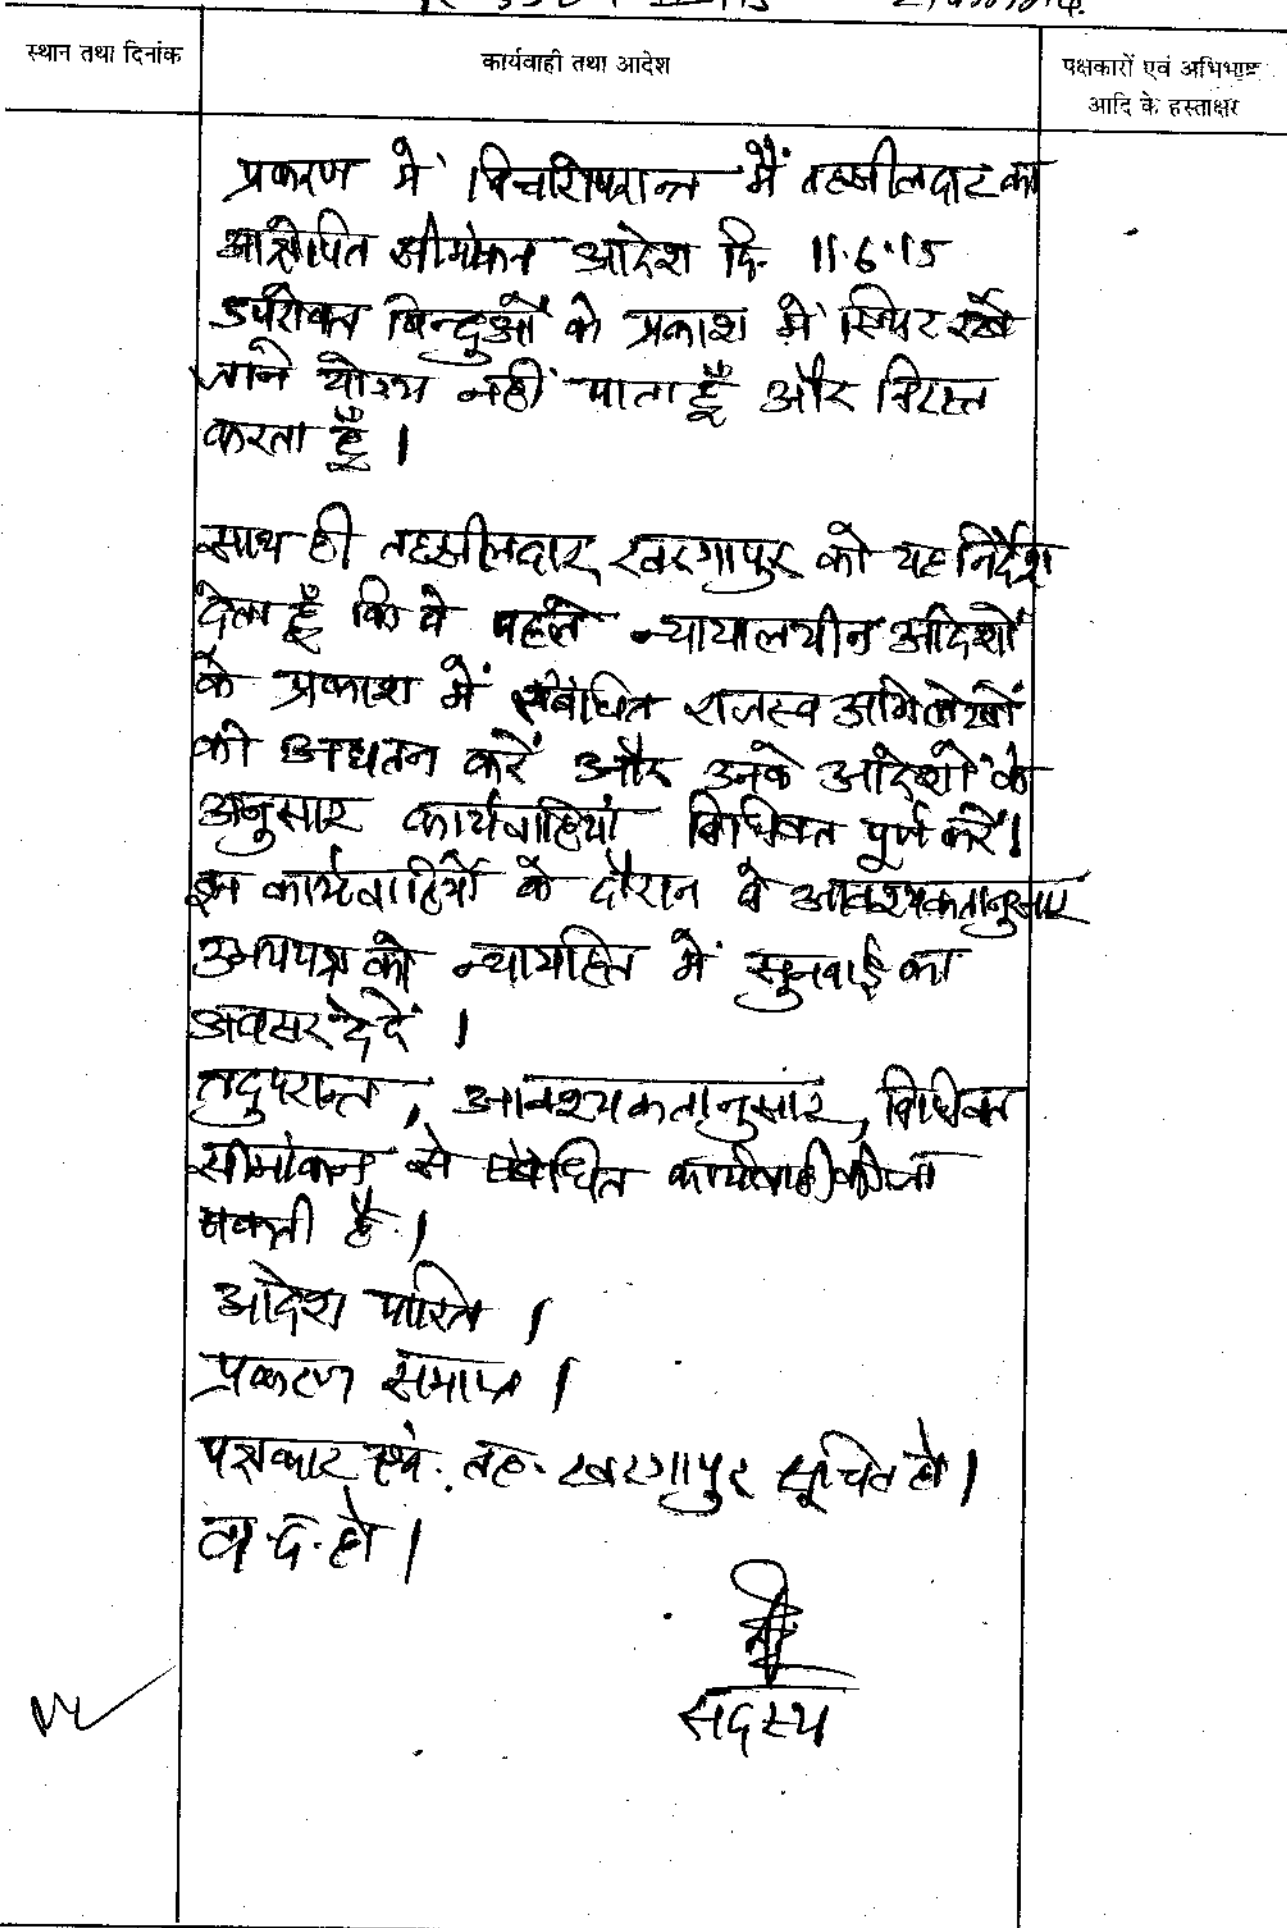 स्थान तथा दिनांक
कार्यवाही तथा आदेश
पक्षकारों एवं अभिभाष
आदि के हस्ताक्षर
प्रकरण में विचारोपरान्त मैं तहसीलदार का
आक्षेपित सीमांकन आदेश दि. 11.6.15
उपरोक्त बिन्दुओं के प्रकाश में स्थिर रखे
जाने योग्य नहीं पाता हूँ और निरस्त
करता हूँ ।
साथ ही तहसीलदार, खरगापुर को यह निर्देश
देता हूँ कि वे पहले न्यायालयीन आदेशों
के प्रकाश में संबंधित राजस्व अभिलेखों
को अद्यतन करें और उनके आदेशों के
अनुसार कार्यवाहियां विधिवत पूर्ण करें ।
इन कार्यवाहियों के दौरान वे आवश्यकतानुसार
उभयपक्ष को न्यायहित में सुनवाई का
अवसर दे दें ।
तदुपरान्त, आवश्यकतानुसार, विधिवत
सीमांकन से संबंधित कार्यवाही की जा
सकती है ।
आदेश पारित ।
प्रकरण समाप्त ।
पक्षकार एवं तह. खरगापुर सूचित हो ।
दा.द. हो ।
सदस्य